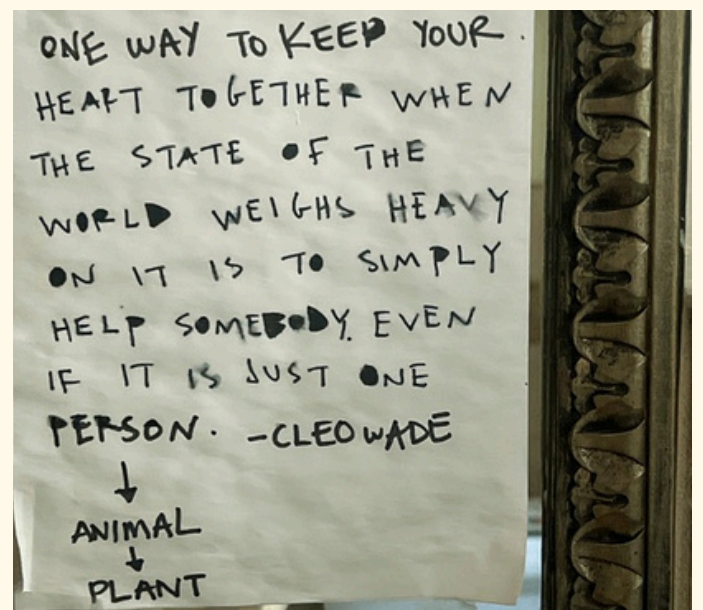 ONE WAY TO KEEP YOUR
HEART TOGETHER WHEN
THE STATE OF THE
WORLD WEIGHS HEAVY
ON IT IS TO SIMPLY
HELP SOMEBODY. EVEN
IF IT IS JUST ONE
PERSON. -CLEO WADE
↓
ANIMAL
↓
PLANT